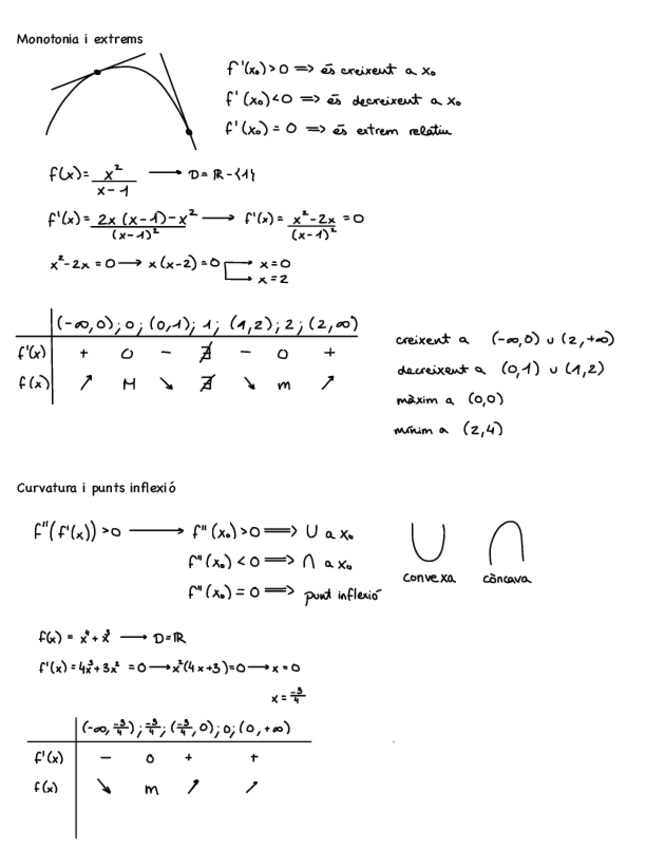 Monotonia i extrems
f'(x₀)>0 => és creixent a x₀
f'(x₀)<0 => és decreixent a x₀
f'(x₀)=0 => és extrem relatiu
f(x)= x²/(x-1) → D=ℝ-{1}
f'(x)= (2x(x-1)-x²)/(x-1)² → f'(x)= (x²-2x)/(x-1)² =0
x²-2x=0 → x(x-2)=0 → x=0
→ x=2
(-∞,0); 0; (0,1); 1; (1,2); 2; (2,∞)
f'(x) + 0 - ∄ - 0 +
f(x) ↗ M ↘ ∄ ↘ m ↗
creixent a (-∞,0) ∪ (2,+∞)
decreixent a (0,1) ∪ (1,2)
màxim a (0,0)
mínim a (2,4)
Curvatura i punts inflexió
f''(f'(x))>0 → f''(x₀)>0 => ∪ a x₀
f''(x₀)<0 => ∩ a x₀
f''(x₀)=0 => punt inflexió
convexa còncava
f(x) = x⁴+x³ → D=ℝ
f'(x)=4x³+3x² =0 → x²(4x+3)=0 → x=0
x=-3/4
(-∞,-3/4); -3/4; (-3/4,0); 0; (0,+∞)
f'(x) - 0 + +
f(x) ↘ m ↗ ↗